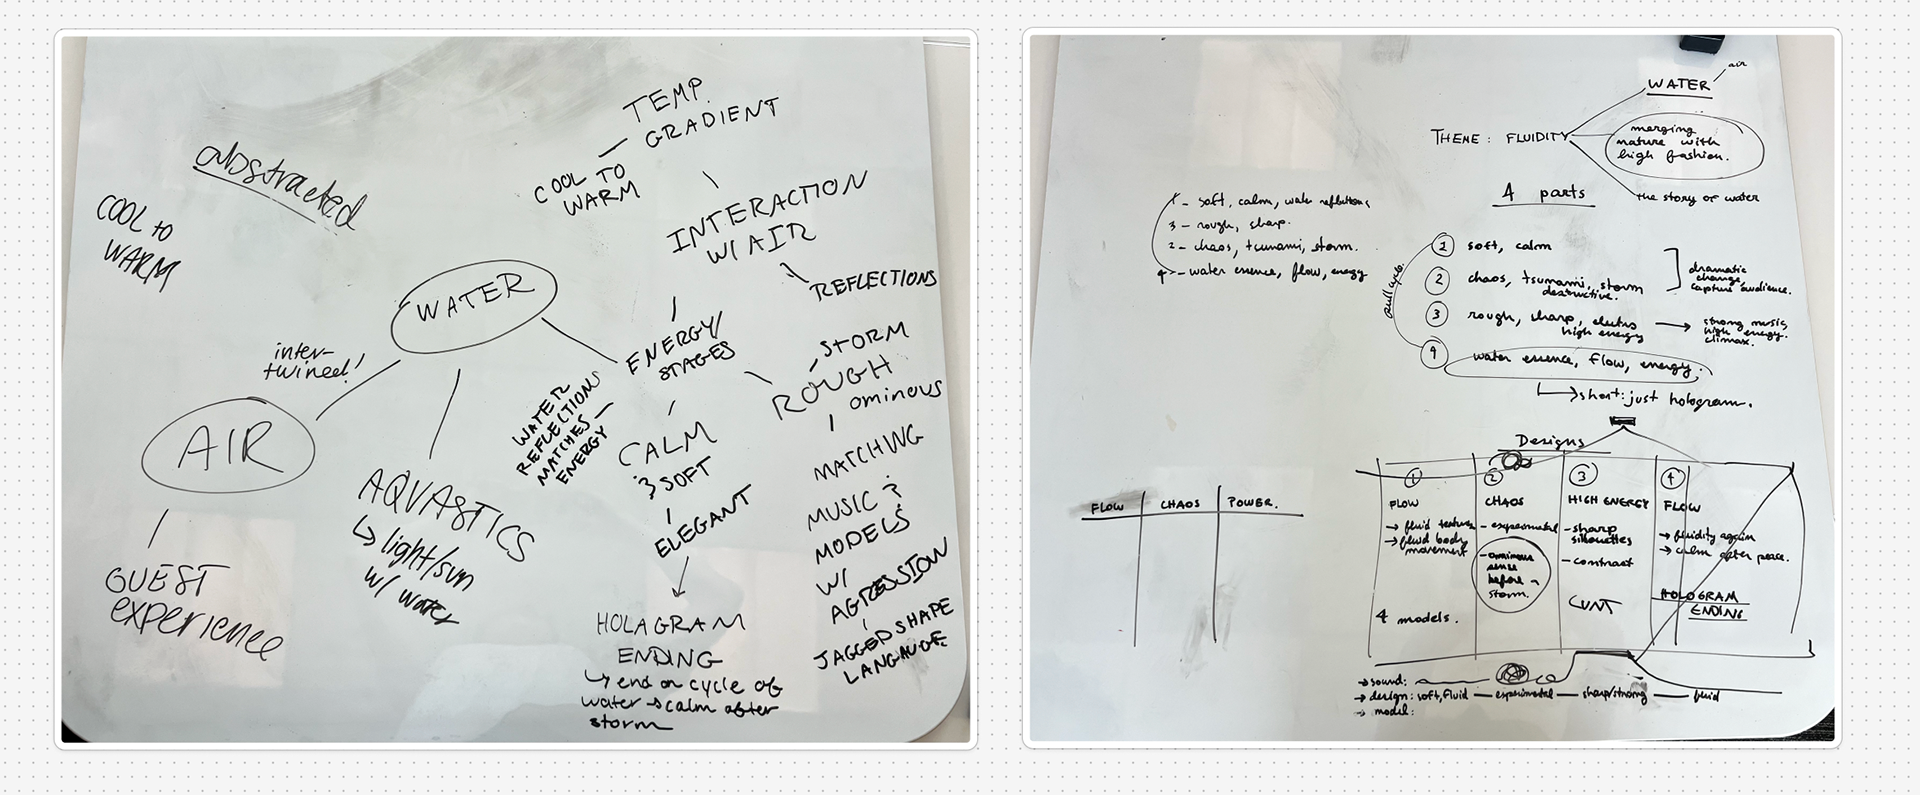 abstracted
COOL to
WARM
TEMP.
GRADIENT
COOL TO
WARM
INTERACTION
W/ AIR
REFLECTIONS
WATER
inter-
twined!
AIR
GUEST
experience
AQVASTICS
↳ light/sun
w/ water
ENERGY/
STAGES
WATER
REFLECTIONS
MATCHES
ENERGY
CALM
& SOFT
ELEGANT
HOLAGRAM
ENDING
↳ end on cycle of
water → calm after
storm
STORM
ROUGH
ominous
MATCHING
MUSIC &
MODELS
W/
AGRESSION
JAGGED SHAPE
LANGAUGE
WATER
air
THEME: FLUIDITY
merging
nature with
high fashion.
the story of water
4 parts
1 - soft, calm, water reflections
3 - rough, sharp.
2 - chaos, tsunami, storm.
4 - water essence, flow, energy
full cycle.
1 soft, calm
2 chaos, tsunami, storm
destructive.
dramatic
change,
capture audience.
3 rough, sharp, electro
high energy
→ strong music,
high energy
climax.
4 water essence, flow, energy.
↳ short: just hologram.
Designs
FLOW CHAOS POWER.
1
FLOW
→ fluid texture
→ fluid body
movement
4 models.
2
CHAOS
- experimental
- ominous
sense
before
storm.
3
HIGH ENERGY
- sharp
silhouettes
- contrast
CUNT
4
FLOW
→ fluidity again
→ calm after peace.
HOLOGRAM
ENDING
→ sound:
→ design: soft, fluid — experimental — sharp/strong — fluid
→ model: